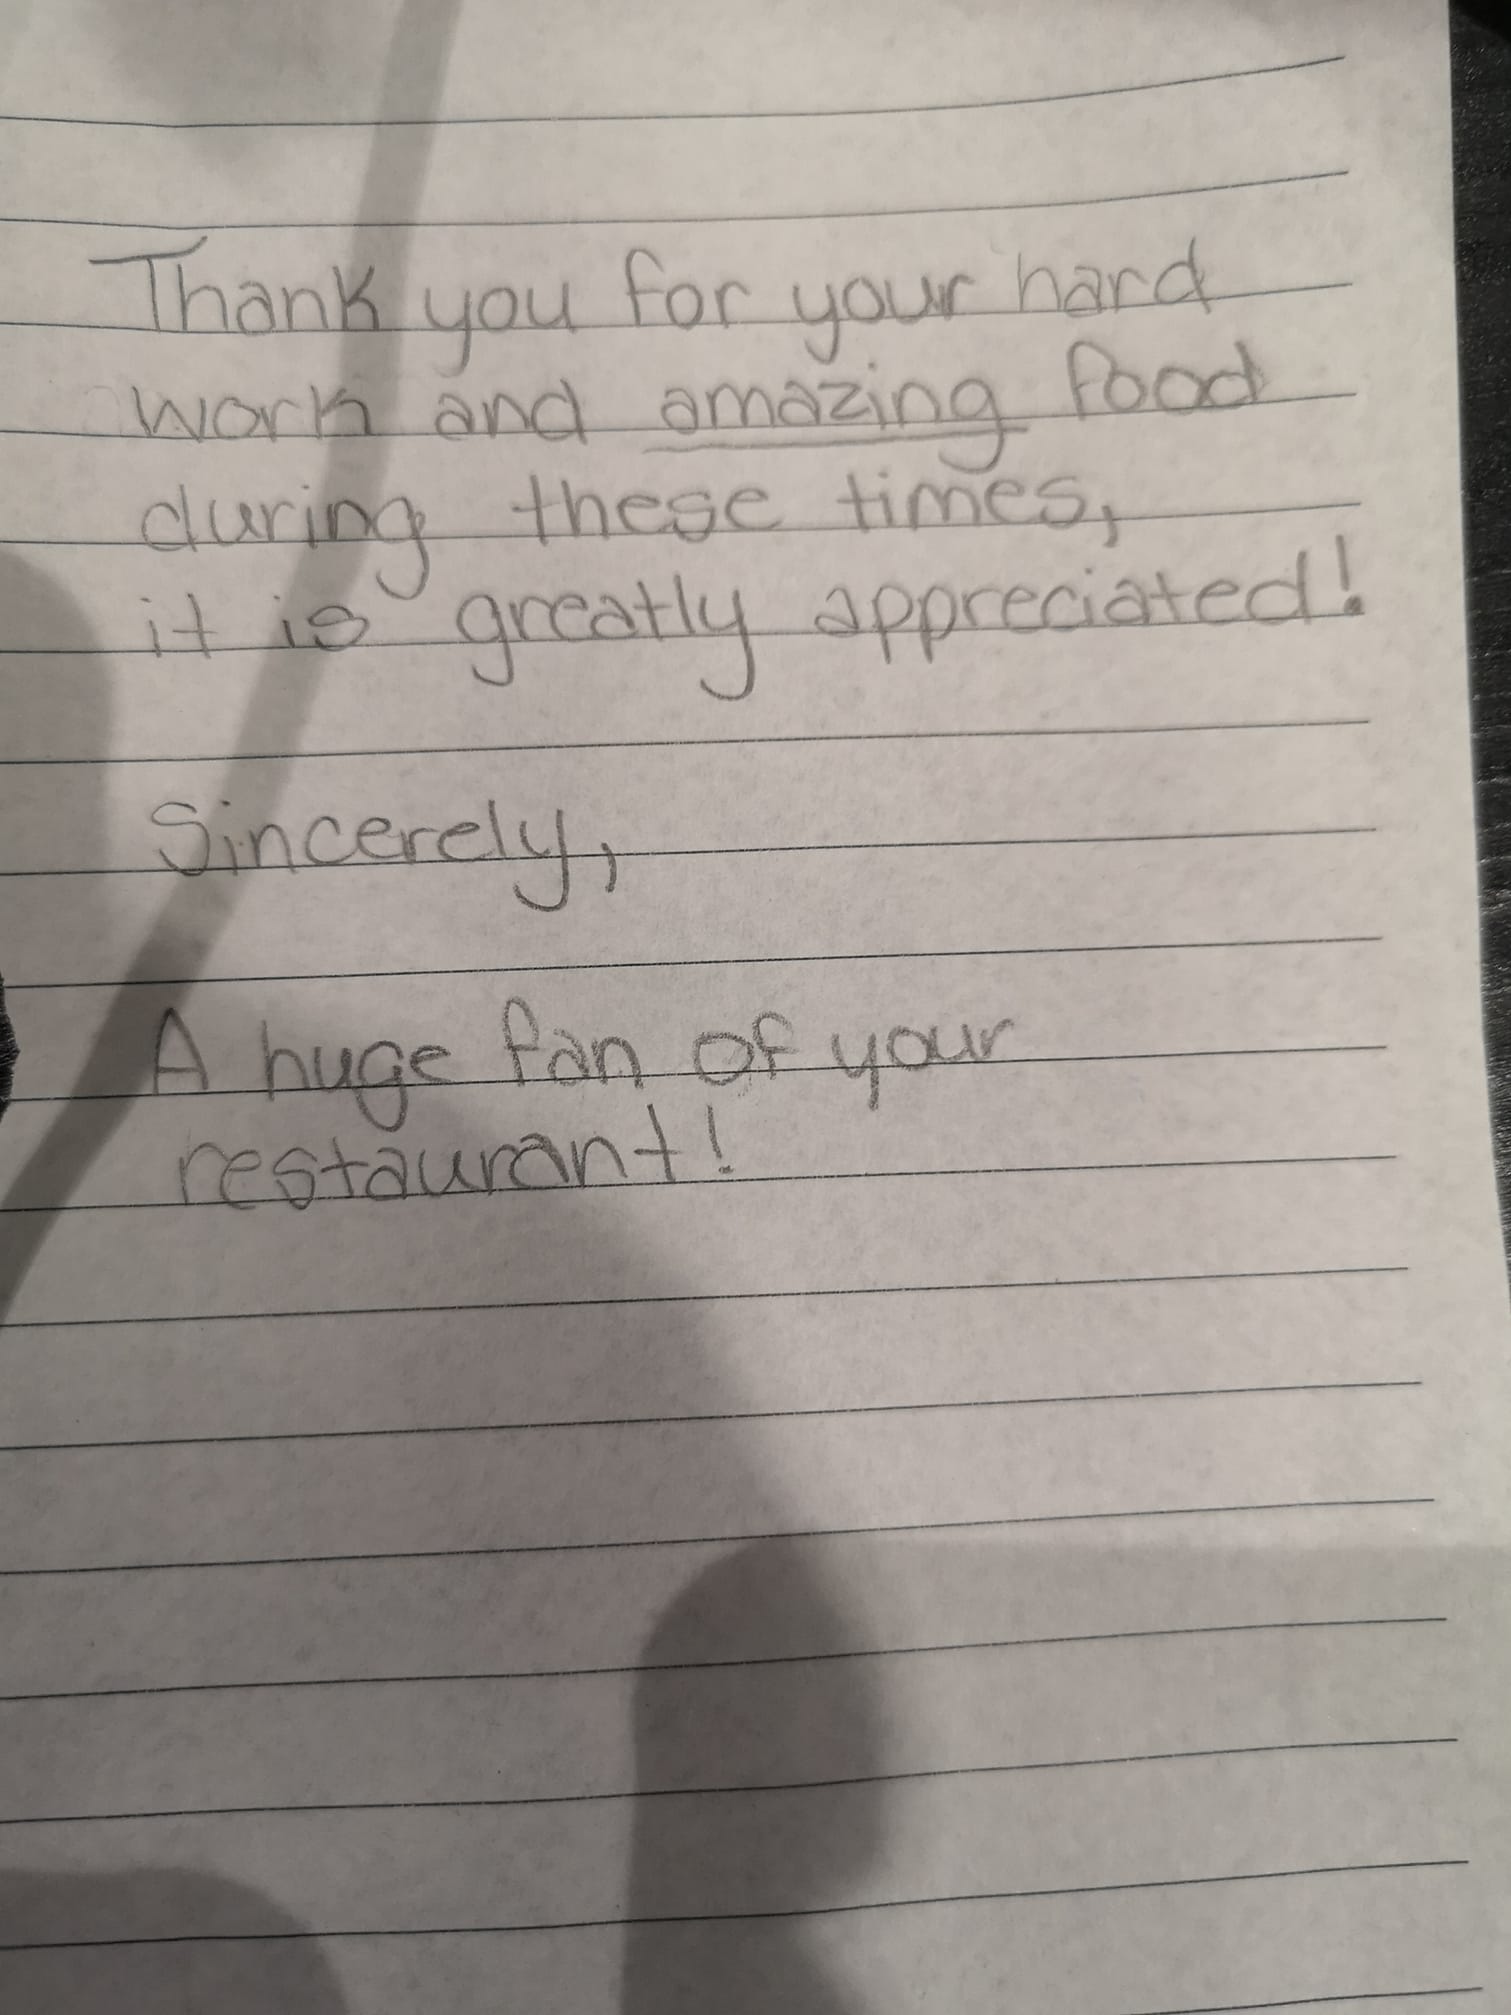 Thank you for your hard
work and amazing food
during these times,
it is greatly appreciated!
Sincerely,
A huge fan of your
restaurant!